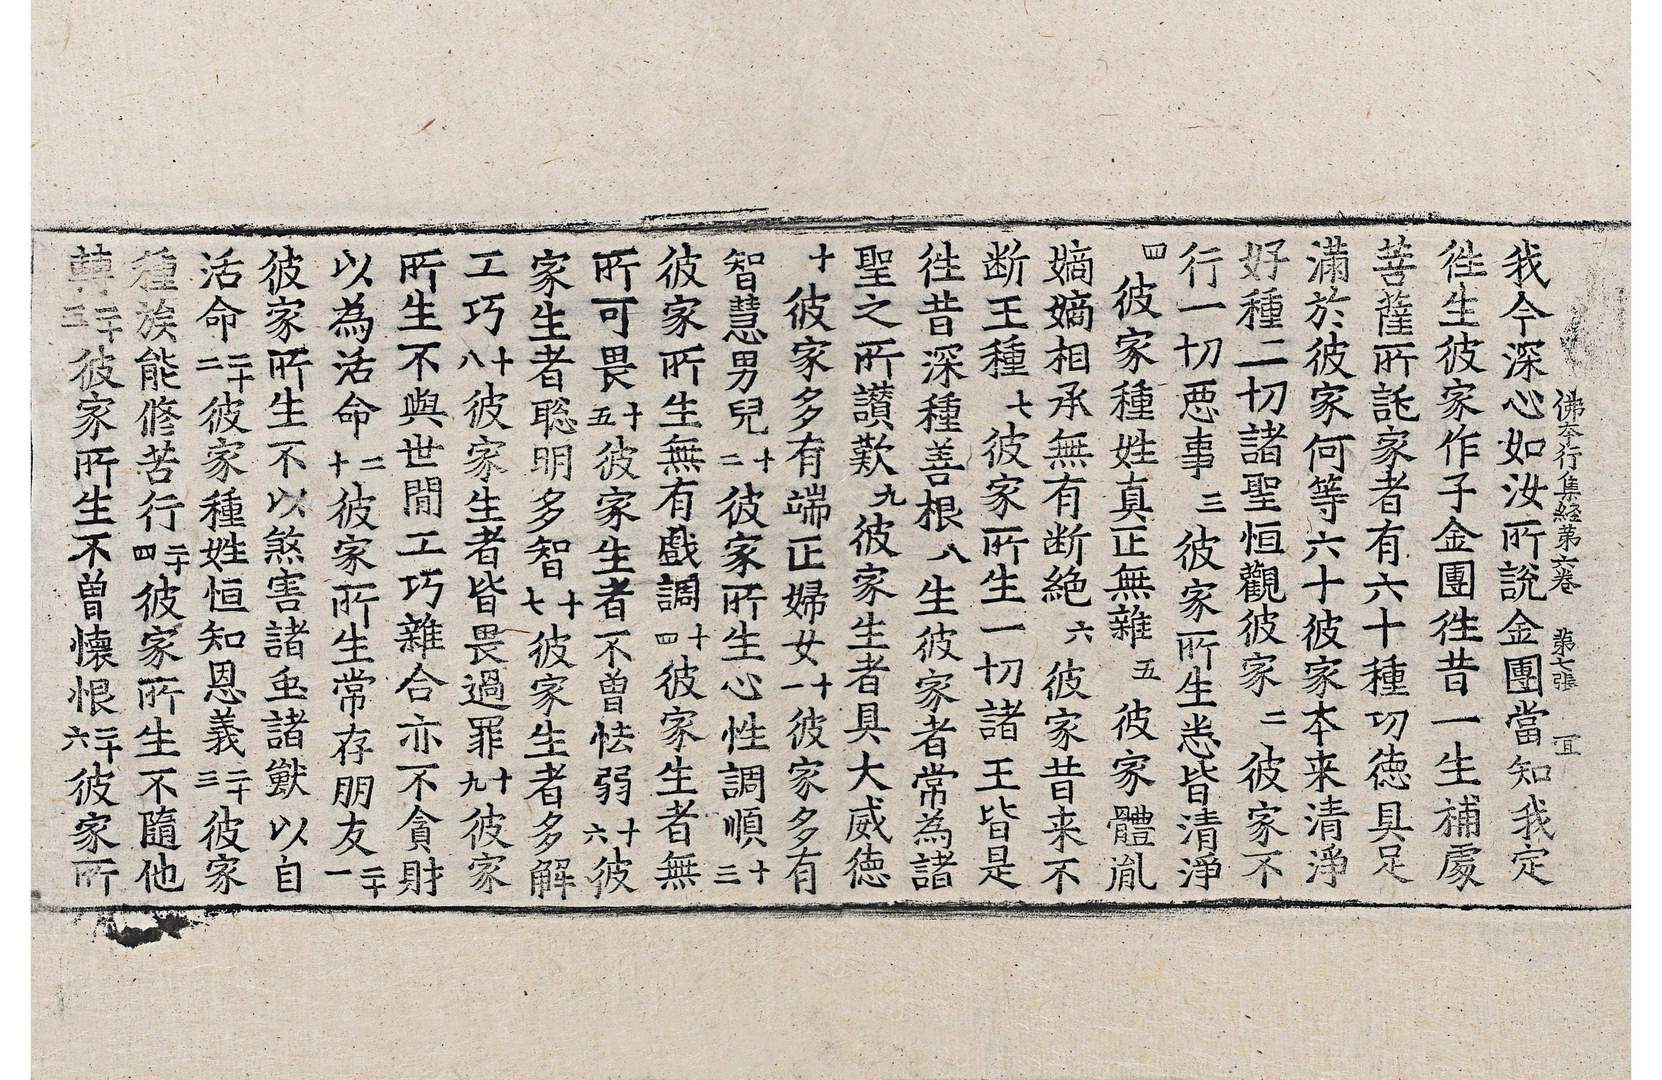 佛本行集経苐六卷 苐七張 冝
我今深心如汝所說金團當知我定
徃生彼家作子金團徃昔一生補處
菩薩所託家者有六十種切德具足
滿於彼家何等六十彼家本来清淨
好種二切諸聖恒觀彼家二彼家不
行一切恶事三彼家所生悉皆清淨
四彼家種姓真正無雜五彼家體胤
嫡嫡相承無有断絶六彼家昔来不
断王種七彼家所生一切諸王皆是
徃昔深種善根八生彼家者常為諸
聖之所讃歎九彼家生者具大威徳
十彼家多有端正婦女十一彼家多有
智慧男兒十二彼家所生心性調順十三
彼家所生無有戲調十四彼家生者無
所可畏十五彼家生者不曾怯弱十六彼
家生者聡明多智十七彼家生者多解
工巧十八彼家生者皆畏過罪十九彼家
所生不與世間工巧雜合亦不貪財
以為活命二十彼家所生常存朋友二十一
彼家所生不以煞害諸虫諸獸以自
活命二十二彼家種姓恒知恩義二十三彼家
種族能修苦行二十四彼家所生不隨他
轉二十五彼家所生不曾懷恨二十六彼家所